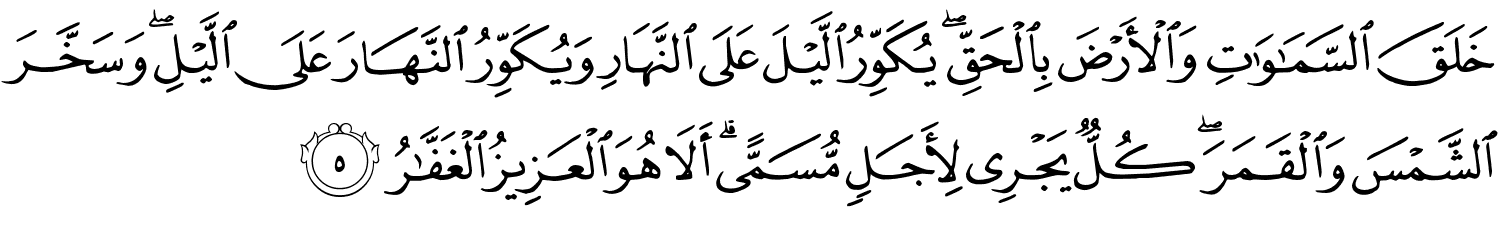 خَلَقَ ٱلسَّمَٰوَٰتِ وَٱلْأَرْضَ بِٱلْحَقِّ ۖ يُكَوِّرُ ٱلَّيْلَ عَلَى ٱلنَّهَارِ وَيُكَوِّرُ ٱلنَّهَارَ عَلَى ٱلَّيْلِ ۖ وَسَخَّرَ
ٱلشَّمْسَ وَٱلْقَمَرَ ۖ كُلٌّ يَجْرِى لِأَجَلٍ مُّسَمًّى ۗ أَلَا هُوَ ٱلْعَزِيزُ ٱلْغَفَّٰرُ ٥